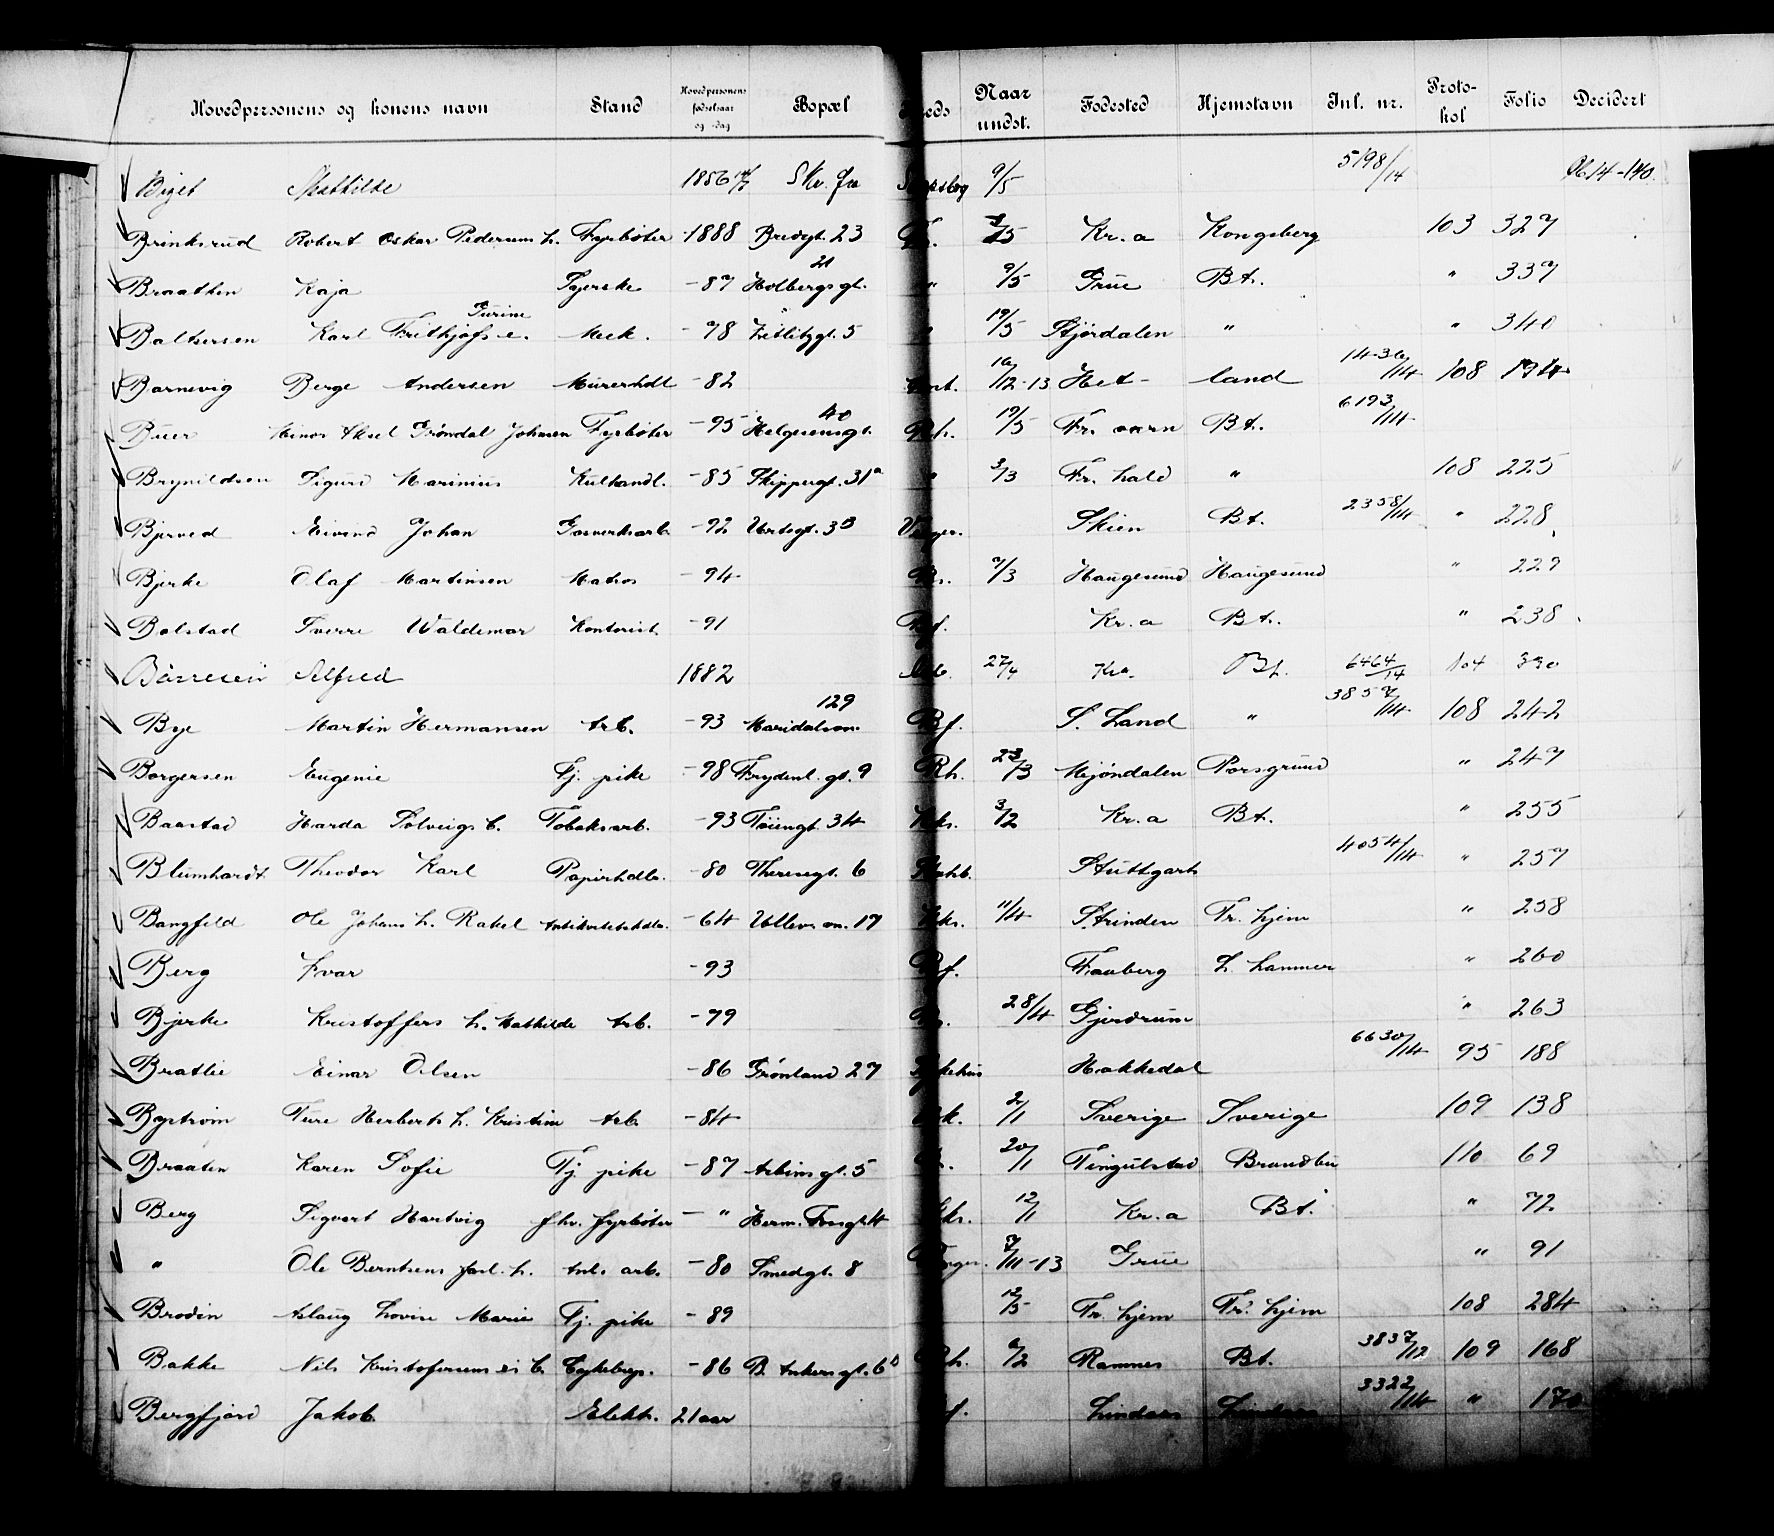 Hovedpersonens og konens navn Stand Hovedpersonens fødselsaar og -dag Bopæl Naar undst. Fødested Hjemstavn Inl. nr. Proto-kol Folio Decidert
Mathilde 1856 Skr. 9/5 5198/14
Brinksrud Robert Oskar Pedersens h. Fyrbøter -1888 Bredgt. 23 Kr.a Kongsberg 103 327
Braathen Kaja Syerske -87 Holbergsgt. 21 " 9/5 Grue Bt. " 337
Baltsersen Karl Frithjofs e. Turine Mek. -78 5 " 19/5 Stjørdalen " " 340
Barnevig Berge Andersen Murerhdl. -82 16/12-13 Het- land 1436/14 108 194
Buer Aksel Grøndal Johnsen Fyrbøter -95 Helgesensgt. 40 Rh. 19/5 Bt. 6193/14
Brynildsen Sigurd Marinius Kulhandl. -85 Skippergt. 31a " 3/3 Fr. hald " 108 225
Bjerved Eivind Johan Gasverksarb. -92 Urtegt. 3B Skien Bt. 2358/14 " 228
Bjerke Olaf Martinsen Matros -94 7/3 Haugesund Haugesund " 229
Bolstad Sverre Waldemar Kontorist. -91 Kr.a Bt. " 238
Børresen Alfred 1882 27/4 Kra. Bt. 6464/14 104 390
Bye Martin Hermansen Arb. -93 Maridalsvn. 129 Bf. S. Land " 3857/14 108 242
Borgersen Eugenie Tj. pike -98 Frydenl. gt. 9 Rh. 23/3 Mjøndalen Porsgrund " 247
Baastad Harda Solveigs b. Tobaksarb. -93 Tøiengt. 34 3/2 Kr.a Bt. " 255
Blumhardt Theodor Karl Papirhdlr. -80 Theresegt. 6 Stuttgart 4054/14 " 257
Bangfeld Ole Johans h. Rakel Antikvitetshdlr. -64 Ullevs. vn. 17 11/4 Strinden Tr. hjem " 258
Berg Ivar -93 Faaberg L. hammer " 260
Bjerke Kristoffers h. Mathilde Arb. -79 28/4 Gjerdrum " 263
Bratlie Einar Olsen -86 Grønland 27 Sykehus Hakkedal 6630/14 95 188
Bystrøm Ture Herberts h. Kristine Arb. -84 2/1 Sverige Sverige 109 138
Braaten Karen Sofie Tj. pike -87 Arbinsgt. 5 20/1 Tingelstad Brandbu 110 69
Berg Sigvart Hartvig fhv. fyrbøter - " Herm. Fossgt. 4 12/1 Kr.a Bt. " 72
" Ole Berntsens forl. h. Anl. arb. -80 Smedgt. 8 7/11-13 Grue " 91
Brodin Aslaug Lovise Marie Tj. pike -89 12/5 Tr. hjem Tr. hjem 108 284
Bakke Nils Kristofersens b. -86 B. Ankersgt. 6b Rh. 6/2 Ramnes Bt. 3837/12 109 168
Bergfjord Jakob Elektr. 21 aar Lindaas Lindaas 3322/14 " 170